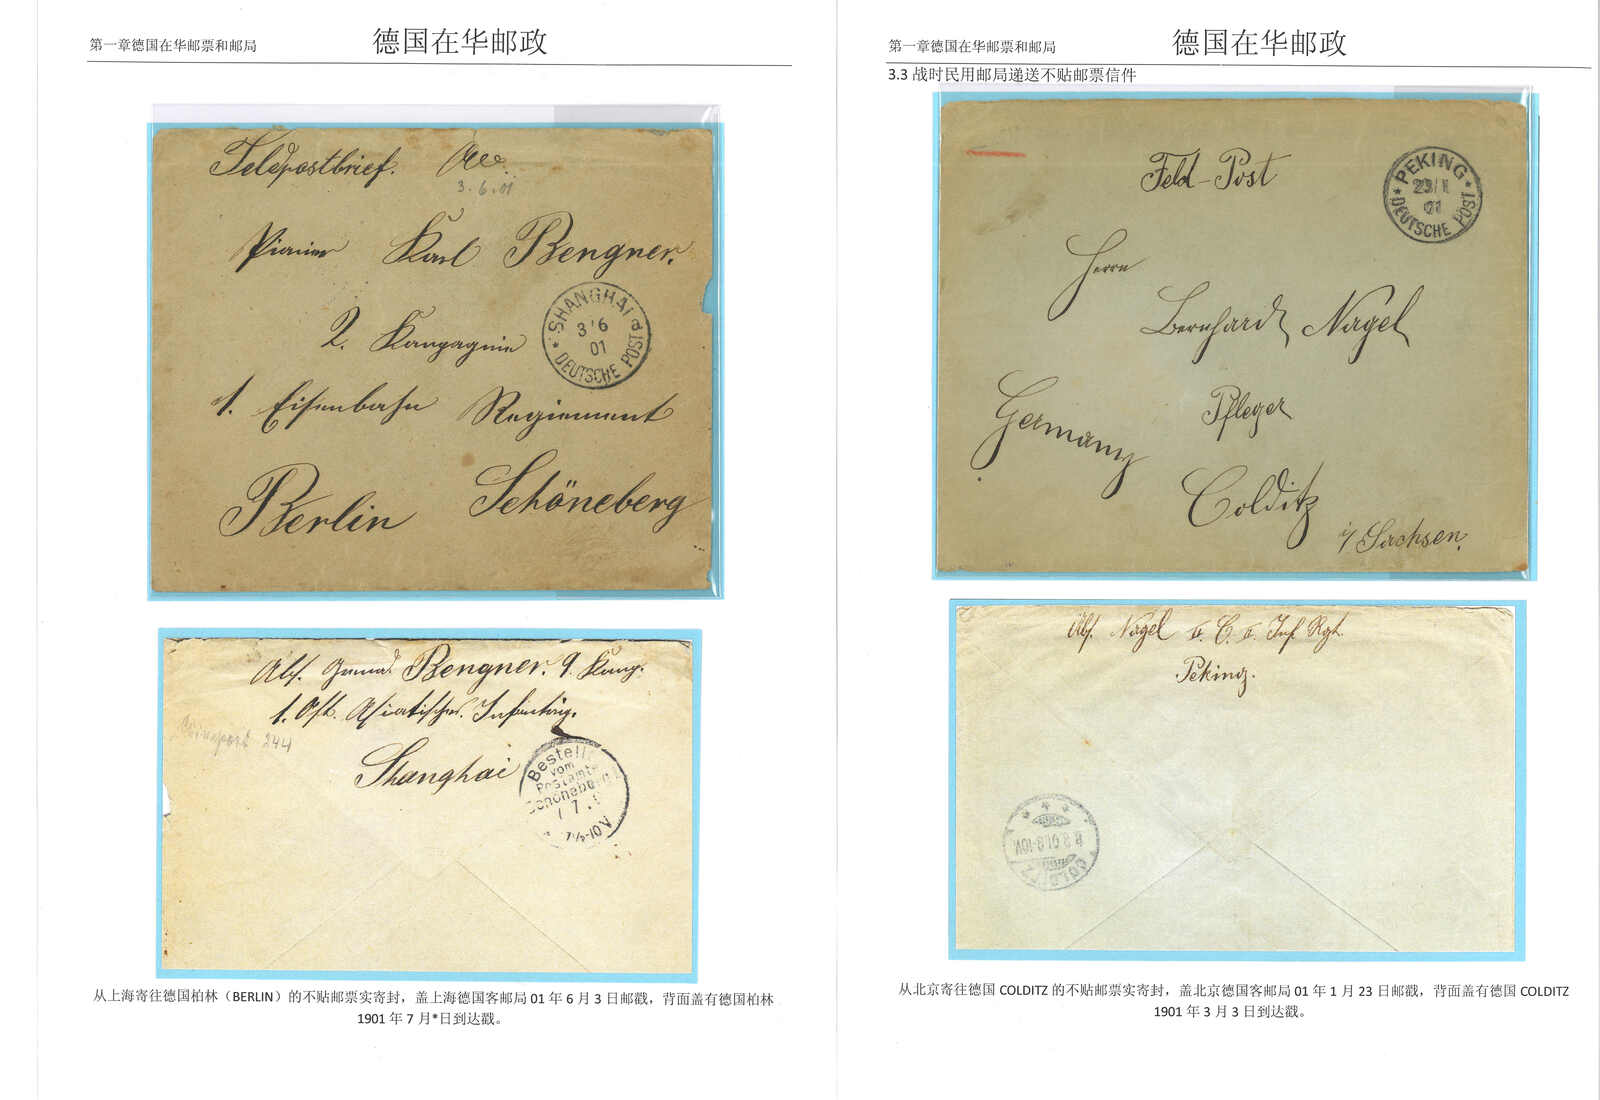 第一章德国在华邮票和邮局
德国在华邮政
Feldpostbrief.
3.6.01
Pionier Karl Bengner.
2. Kompagnie
SHANGHAI d
3/6
01
DEUTSCHE POST
1. Eisenbahn Regiement
Berlin Schöneberg
Abs. Bengner. 9. Komp.
1. Ost. Asiatisches. Infantrig.
244
Shanghai
Bestellt
vom
Postamte
Schöneberg
7
从上海寄往德国柏林（BERLIN）的不贴邮票实寄封，盖上海德国客邮局 01 年 6 月 3 日邮戳，背面盖有德国柏林
1901 年 7 月*日到达戳。
第一章德国在华邮票和邮局
德国在华邮政
3.3 战时民用邮局递送不贴邮票信件
Feld-Post
PEKING
23/1
01
DEUTSCHE POST
Herrn
Bernhard Nagel
Pfleger
Germany
Colditz
i/ Sachsen.
Abs. Nagel II. C. II. Inf Rgt.
Peking.
COLDITZ
从北京寄往德国 COLDITZ 的不贴邮票实寄封，盖北京德国客邮局 01 年 1 月 23 日邮戳，背面盖有德国 COLDITZ
1901 年 3 月 3 日到达戳。